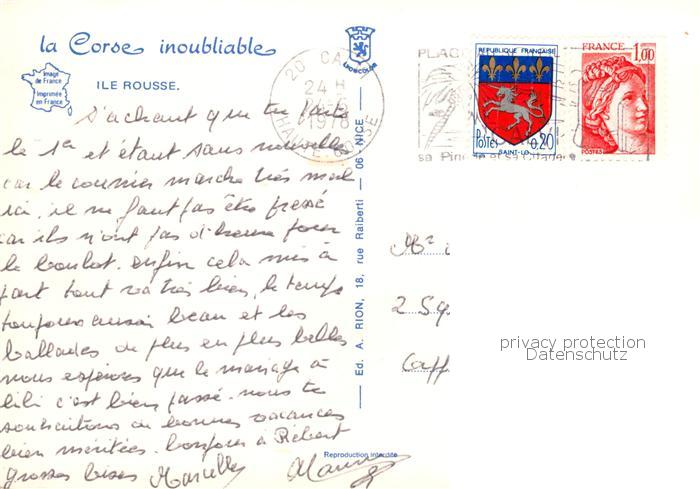 la Corse inoubliable
Image
de France
Imprimée
en France
ILE ROUSSE.
LIONCOLOR
20 CA
24 H
1978
HAUTE CORSE
PLAG
sa Pin et sa Citadelle
REPUBLIQUE FRANÇAISE
POSTES
0,20
SAINT-LO
FRANCE
1,00
POSTES
s'achant que tu parte
le 1er et étant sans nouvelles
car le courrier marche très mal
ici, il ne faut pas être pressé
car ils n'ont pas d'heure pour
le boulot. enfin cela mis à
part tout va très bien, le temps
toujours aussi beau et les
ballades de plus en plus belles
nous espérons que le mariage à
lili c'est bien passé. nous te
souhaitons de bonnes vacances
bien méritées. bonjour à Robert
grosses bises Marcelle
Ed. A. RION, 18, rue Raiberti — 06 - NICE
2 Sq
Caff
privacy protection
Datenschutz
Reproduction interdite